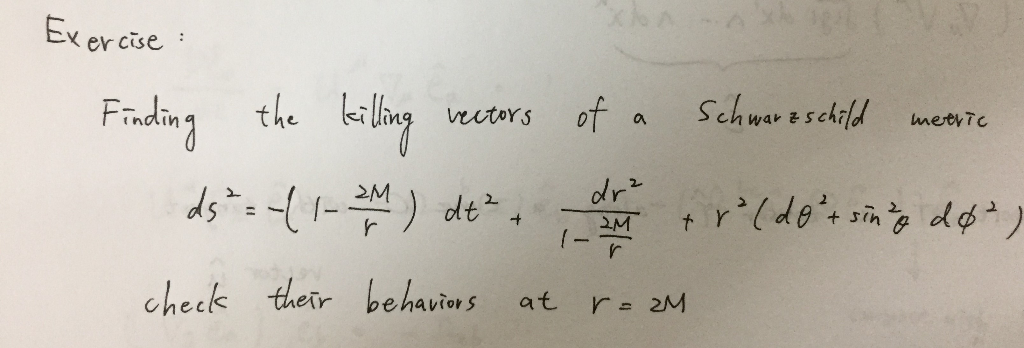 Exercise :
Finding the killing vectors of a Schwarzschild metric
ds² = -(1 - 2M/r) dt² + dr²/(1 - 2M/r) + r²(dθ² + sin²θ dφ²)
check their behaviors at r = 2M